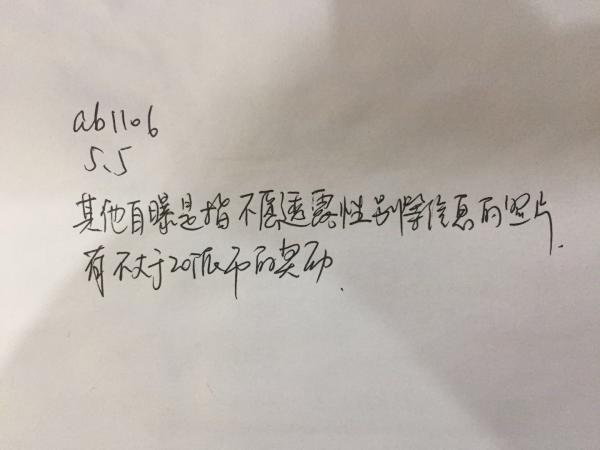 ab1106
5.5
其他自曝是指不愿透露性别等信息的照片.
有不大于20派币的奖励.